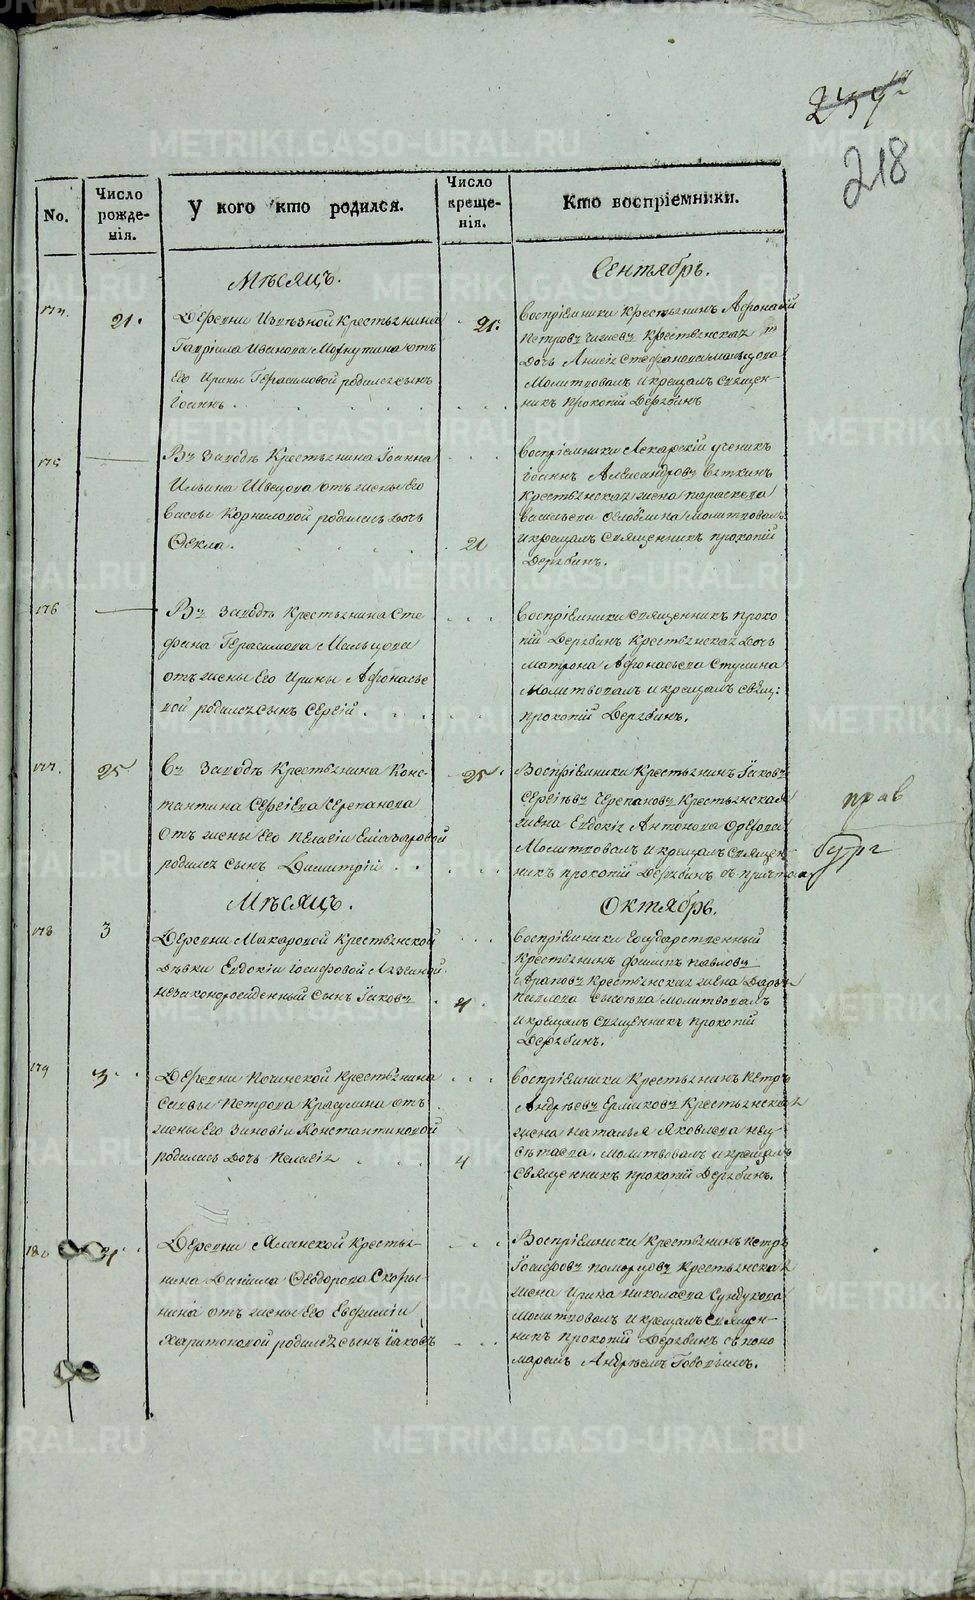 218
No.
Число рожде-нія.
У кого кто родился.
Число креще-нія.
Кто воспріемники.
Мѣсяцъ.
Сентябрь.
174.
21.
Деревни Изъѣзной крестьянина
Гавріила Иванова Махнутина отъ
его Ирины Герасимовой родился сынъ
Іоаннъ.
21.
воспріемники крестьянинъ Афонасій
Петровъ крестьянская
дочь Анисія Стефанова Мальцова
Молитвовалъ и крещалъ священ-
никъ Прокопій Дерябинъ
175
Въ Заводѣ крестьянина Іоанна
Ильина Швецова отъ жены его
Вассы Корниловой родилась дочь
Фекла.
21
воспріемники Лекарскій ученикъ
Іоаннъ Александровъ Вяткинъ
крестьянская жена Параскева
Васильева молитвовалъ
и крещалъ священникъ Прокопій
Дерябинъ.
176
Въ Заводѣ крестьянина Сте
фана Герасимова Мальцова
отъ жены его Ирины Афонасье
вой родился сынъ Сергій.
воспріемники священникъ Проко
пій Дерябинъ крестьянская дочь
Матрона Афонасьева Ступина
Молитвовалъ и крещалъ свящ:
Прокопій Дерябинъ.
177.
25
Въ Заводѣ крестьянина Конс-
тантина Сергіева Черепанова
отъ жены его Пелагіи Елиазаровой
родился сынъ Димитрій
25.
Воспріемники крестьянинъ Іаковъ
Сергѣевъ Черепановъ крестьянская
жена Евдокія Антонова
Молитвовалъ и крещалъ священ-
никъ Прокопій Дерябинъ съ причтомъ
Мѣсяцъ.
Октябрь.
178
3
Деревни Макаровой крестьянской
дѣвки Евдокіи Іосифовой
незаконорожденный сынъ Іаковъ
4.
воспріемники Государственный
крестьянинъ Филипъ Павловъ
Араповъ крестьянская жена Дарья
Павлова Сысоева молитвовалъ
и крещалъ священникъ Прокопій
Дерябинъ.
179
3.
Деревни Починской крестьянина
Саввы Петрова Красулина отъ
жены его Зиновіи Константиновой
родилась дочь Пелагія
4
воспріемники крестьянинъ Петръ
Андрѣевъ Ермаковъ крестьянская
жена Наталья Яковлева
Молитвовалъ и крещалъ
священникъ Прокопій Дерябинъ.
180
Деревни Ялынской крестья-
нина Даніила Феодорова Скоры-
нина отъ жены его Евфиміи
Харитоновой родился сынъ Іаковъ
Воспріемники крестьянинъ Петръ
Іосифовъ Поморцовъ крестьянская
жена Ирина Николаева Сундукова
Молитвовалъ и крещалъ священ-
никъ Прокопій Дерябинъ съ поно
маремъ Андрѣемъ Говоринымъ.
METRIKI.GASO-URAL.RU